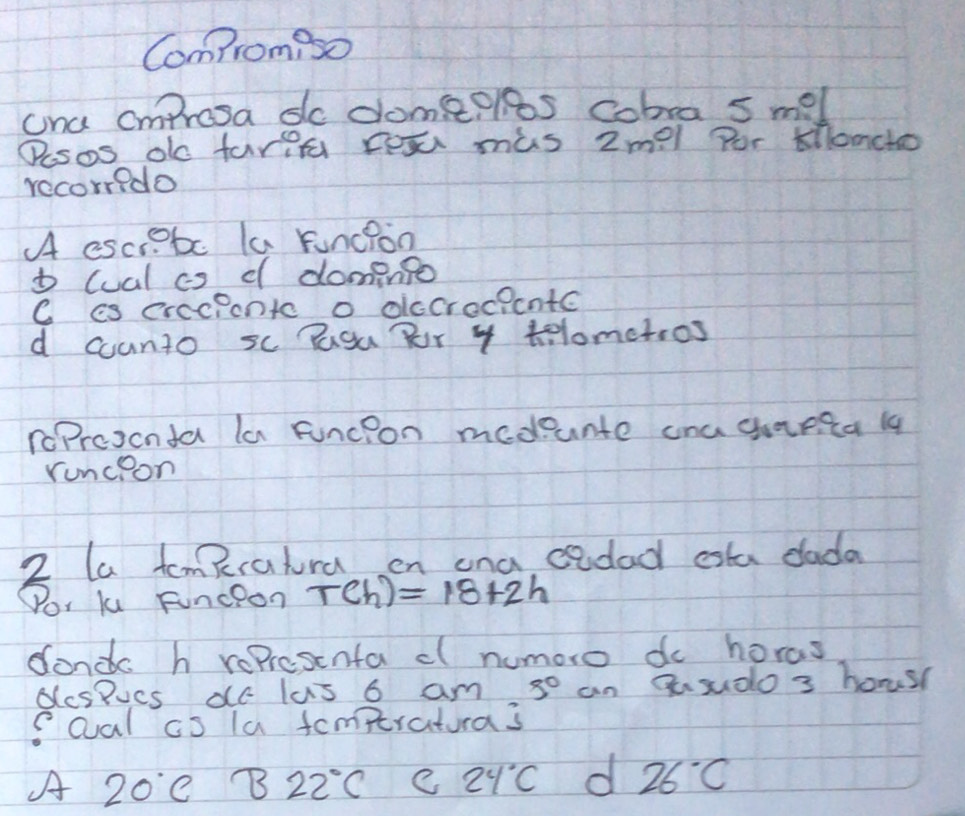 Compromiso
una empresa de domicilios cobra 5 mil
Pesos de tarifa fija más 2mil Por kilometro
recorrido
A escribe la función
b Cual es el dominio
C es creciente o decreciente
d cuanto se Paga Por 4 kilometros
rePresenta la función mediante una grafica la
funcion
2 la temPeratura en una ciudad esta dada
Por la Funcion T(h)= 18+2h
donde h rePresenta el numero de horas
desPues de las 6 am si an Pasado 3 horas
¿ Cual es la temPeratura?
A 20°C B 22°C C 24°C d 26°C